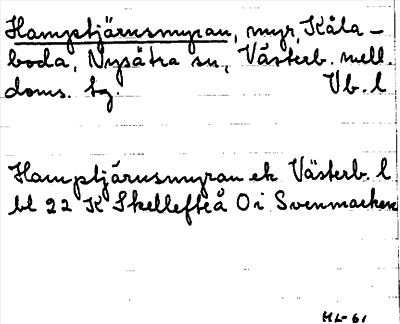 Hamptjärnsmyran, myr, Kåla-
boda, Nysätra sn, Västerb. mell.
doms. tg. Vb. l
Hamptjärnsmyran ek Västerb. l
bl 22 K Skellefteå O i Svenmarken
HL-61